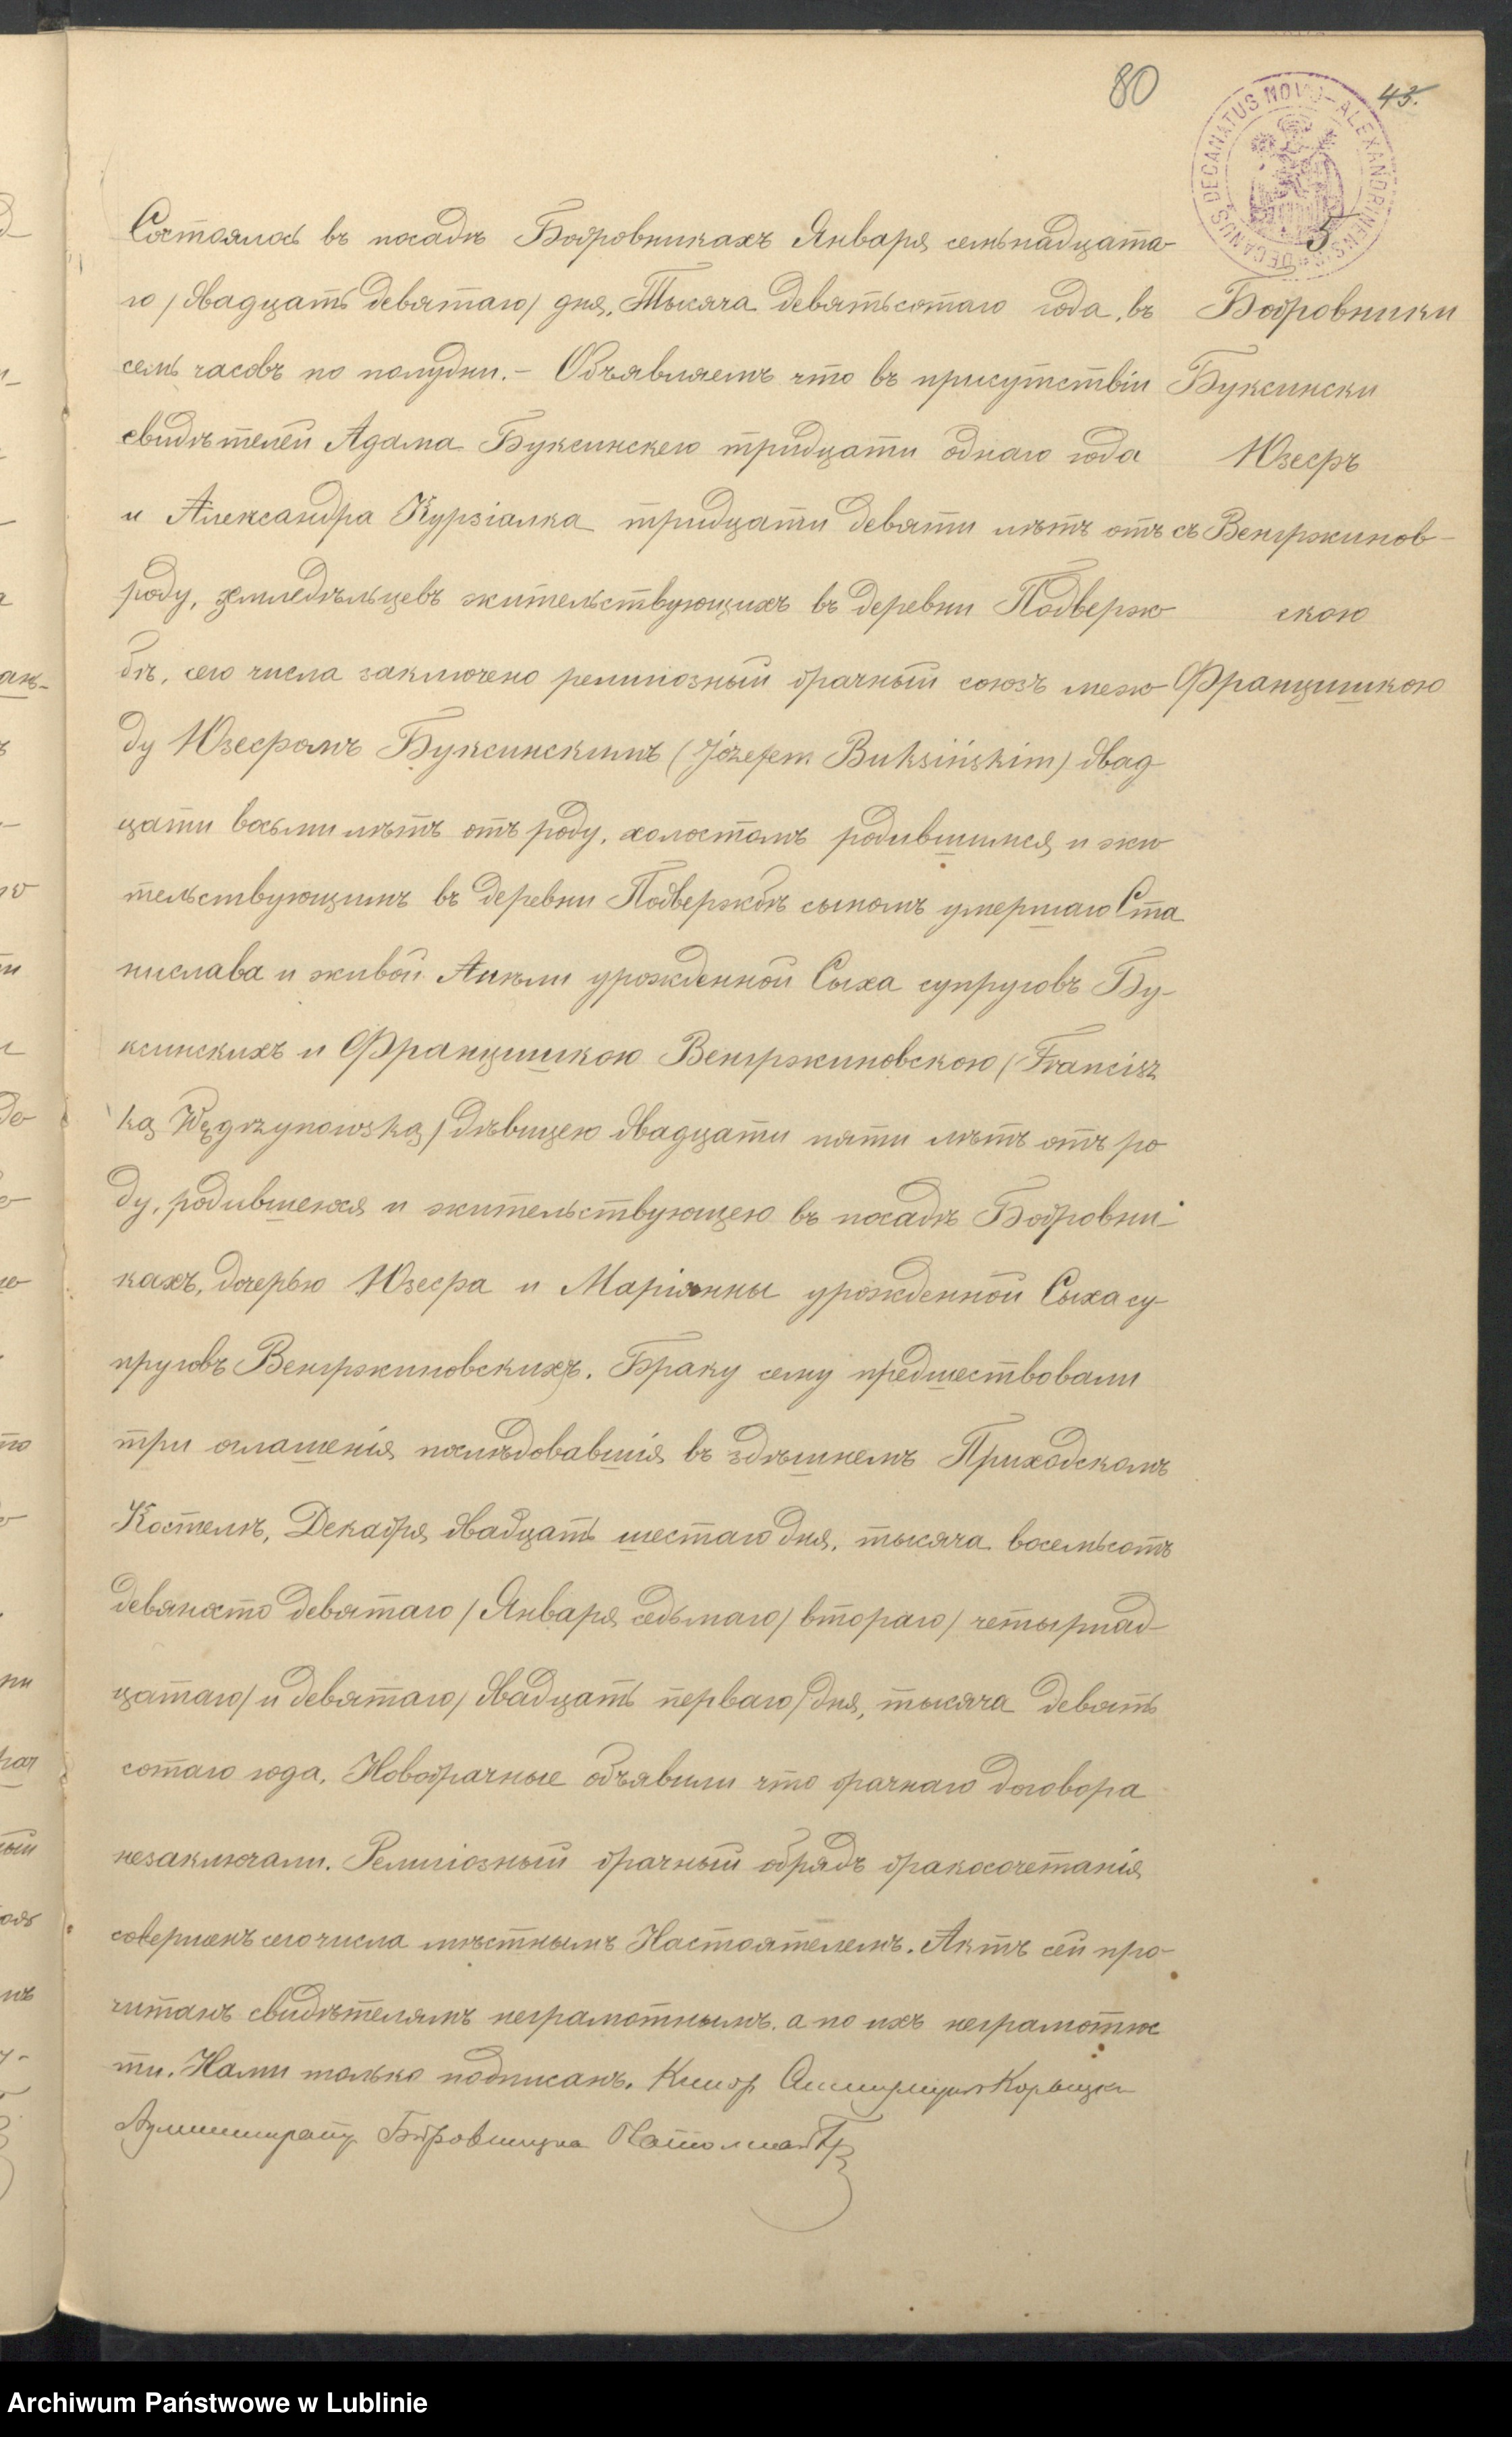 80
43.
DECANUS DECANATUS NOVO-ALEXANDRINENSIS
5
Бобровники
Буксински
Юзефъ
съ Венгржинов-
скою
Францишкою
Состоялось въ посадѣ Бобровникахъ Января семьнадцата
го /двадцать девятаго/ дня, Тысяча девятьсотаго года, въ
семь часовъ по полудни. – Объявляемъ что въ присутствіи
свидѣтелей Адама Буксинскего тридцати однаго года
и Александра Курзіалка тридцати девяти лѣтъ отъ
роду, земледѣльцевъ жительствующихъ въ деревни Подверж
бѣ, сего числа заключено религіозный брачный союзъ меж
ду Юзефомъ Буксинскимъ (Józefem Buksińskim) двад
цати восьми лѣтъ отъ роду, холостомъ родившимся и жи
тельствующимъ въ деревни Подвержбѣ сыномъ умершаго Ста
нислава и живой Анѣли урожденной Сыха супруговъ Бу-
ксинскихъ и Францишкою Венгржиновскою (Francisz
ką Węgrzynowską) дѣвицею двадцати пяти лѣтъ отъ ро
ду, родившеюся и жительствующею въ посадѣ Бобровни-
кахъ, дочерью Юзефа и Маріянны урожденной Сыха су-
пруговъ Венгржиновскихъ. Браку сему предшествовали
три оглашенія послѣдовавшія въ здѣшнемъ Приходскомъ
Костелѣ, Декабря двадцать шестаго дня, тысяча восемьсотъ
девяносто девятаго /Января седьмаго/ втораго/ четырнад-
цатаго/ и девятаго/ двадцать перваго/ дня, тысяча девять
сотаго года. Новобрачные объявили что брачнаго договора
незаключали. Религіозный брачный обрядъ бракосочетанія
совершенъ сего числа мѣстнымъ Настоятелемъ. Актъ сей про-
читанъ свидѣтелямъ неграмотнымъ, а по ихъ неграмотнос
ти. Нами только подписанъ.
Archiwum Państwowe w Lublinie